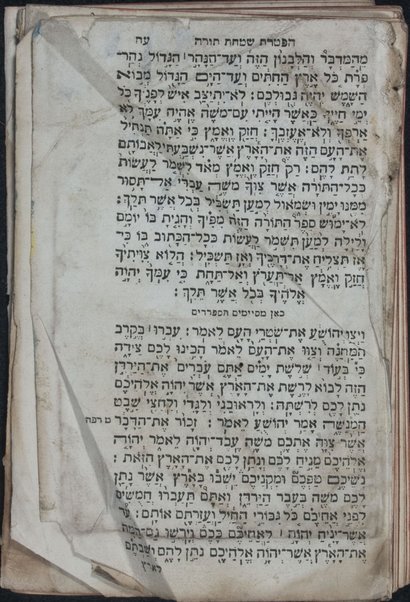 הפטרת שמחת תורה עה
מֵהַמִּדְבָּר וְהַלְּבָנוֹן הַזֶּה וְעַד־הַנָּהָר הַגָּדוֹל נְהַר־
פְּרָת כֹּל אֶרֶץ הַחִתִּים וְעַד־הַיָּם הַגָּדוֹל מְבוֹא
הַשָּׁמֶשׁ יִהְיֶה גְּבוּלְכֶם: לֹא־יִתְיַצֵּב אִישׁ לְפָנֶיךָ כֹּל
יְמֵי חַיֶּיךָ כַּאֲשֶׁר הָיִיתִי עִם־מֹשֶׁה אֶהְיֶה עִמָּךְ לֹא
אַרְפְּךָ וְלֹא־אֶעֶזְבֶךָּ: חֲזַק וֶאֱמָץ כִּי אַתָּה תַּנְחִיל
אֶת־הָעָם הַזֶּה אֶת־הָאָרֶץ אֲשֶׁר־נִשְׁבַּעְתִּי לַאֲבוֹתָם
לָתֵת לָהֶם: רַק חֲזַק וֶאֱמַץ מְאֹד לִשְׁמֹר לַעֲשׂוֹת
כְּכָל־הַתּוֹרָה אֲשֶׁר צִוְּךָ מֹשֶׁה עַבְדִּי אַל־תָּסוּר
מִמֶּנּוּ יָמִין וּשְׂמֹאול לְמַעַן תַּשְׂכִּיל בְּכֹל אֲשֶׁר תֵּלֵךְ:
לֹא־יָמוּשׁ סֵפֶר הַתּוֹרָה הַזֶּה מִפִּיךָ וְהָגִיתָ בּוֹ יוֹמָם
וָלַיְלָה לְמַעַן תִּשְׁמֹר לַעֲשׂוֹת כְּכָל־הַכָּתוּב בּוֹ כִּי־
אָז תַּצְלִיחַ אֶת־דְּרָכֶיךָ וְאָז תַּשְׂכִּיל: הֲלוֹא צִוִּיתִיךָ
חֲזַק וֶאֱמָץ אַל־תַּעֲרֹץ וְאַל־תֵּחָת כִּי עִמְּךָ יְהוָה
אֱלֹהֶיךָ בְּכֹל אֲשֶׁר תֵּלֵךְ:
כאן מסיימים הספרדים
וַיְצַו יְהוֹשֻׁעַ אֶת־שֹׁטְרֵי הָעָם לֵאמֹר: עִבְרוּ בְּקֶרֶב
הַמַּחֲנֶה וְצַוּוּ אֶת־הָעָם לֵאמֹר הָכִינוּ לָכֶם צֵידָה
כִּי בְּעוֹד שְׁלֹשֶׁת יָמִים אַתֶּם עֹבְרִים אֶת־הַיַּרְדֵּן
הַזֶּה לָבוֹא לָרֶשֶׁת אֶת־הָאָרֶץ אֲשֶׁר יְהוָה אֱלֹהֵיכֶם
נֹתֵן לָכֶם לְרִשְׁתָּהּ: וְלָראוּבֵנִי וְלַגָּדִי וְלַחֲצִי שֵׁבֶט
הַמְנַשֶּׁה אָמַר יְהוֹשֻׁעַ לֵאמֹר: זָכוֹר אֶת־הַדָּבָר
אֲשֶׁר צִוָּה אֶתְכֶם מֹשֶׁה עֶבֶד־יְהוָה לֵאמֹר יְהוָה
אֱלֹהֵיכֶם מֵנִיחַ לָכֶם וְנָתַן לָכֶם אֶת־הָאָרֶץ הַזֹּאת:
נְשֵׁיכֶם טַפְּכֶם וּמִקְנֵיכֶם יֵשְׁבוּ בָּאָרֶץ אֲשֶׁר נָתַן
לָכֶם מֹשֶׁה בְּעֵבֶר הַיַּרְדֵּן וְאַתֶּם תַּעַבְרוּ חֲמֻשִׁים
לִפְנֵי אֲחֵיכֶם כֹּל גִּבּוֹרֵי הַחַיִל וַעֲזַרְתֶּם אוֹתָם: עַד
אֲשֶׁר־יָנִיחַ יְהוָה לַאֲחֵיכֶם כָּכֶם וְיָרְשׁוּ גַם־הֵמָּה
אֶת־הָאָרֶץ אֲשֶׁר־יְהוָה אֱלֹהֵיכֶם נֹתֵן לָהֶם וְשַׁבְתֶּם
לארץ